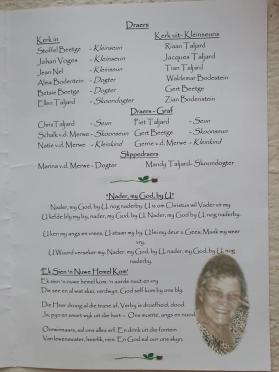 Draers
Kerk in Kerk uit- Kleinseuns
Stoffel Beetge - Kleinseun Riaan Taljard
Johan Voges - Kleinseun Jacques Taljard
Jean Nel - Kleinseun Tian Taljard
Alea Bodentein - Dogter Waldemar Bodestein
Betsie Beetge - Dogter Gert Beetge
Ellen Taljard - Skoondogter Zian Bodenstein
Draers - Graf
Chris Taljard - Seun Piet Taljard - Seun
Schalk v.d. Merwe - Skoonseun Gert Beetge - Skoonseun
Natie v.d. Merwe - Kleinkind Gerrie v.d. Merwe - Kleinkind
Slippedraers
Marina v.d. Merwe - Dogter Mandy Taljard- Skoondogter
"Nader, my God, by U"
Nader, my God, by U, nog naderby. U is om Christus wil Vader vir my
U liefde bly my by, nader, my God, by U. Nader, my God, by U nog naderby.
U ken my angs en vrees, U staan my by. U lei my deur u Gees, Maak my weer
vry.
U Woord verseker my- Nader, my God, by U, nader, my God, by U, nog
naderby.
'Ek Sien 'n Nuwe Hemel Kom'
Ek sien 'n nuwe hemel kom, 'n aarde nuut en vry
Die see en al wat skei, verdwyn. God self kom by ons bly.
Die Heer droog al die trane af, Verby is droefheid, dood.
Ja, pyn en smart wyk uit die hart - Ons moeite, angs en nood.
Oorwinnaars, sal ons alles erf. En drink uit die fontein
Van lewenswater, heerlik, rein. En God sal oor ons skyn.